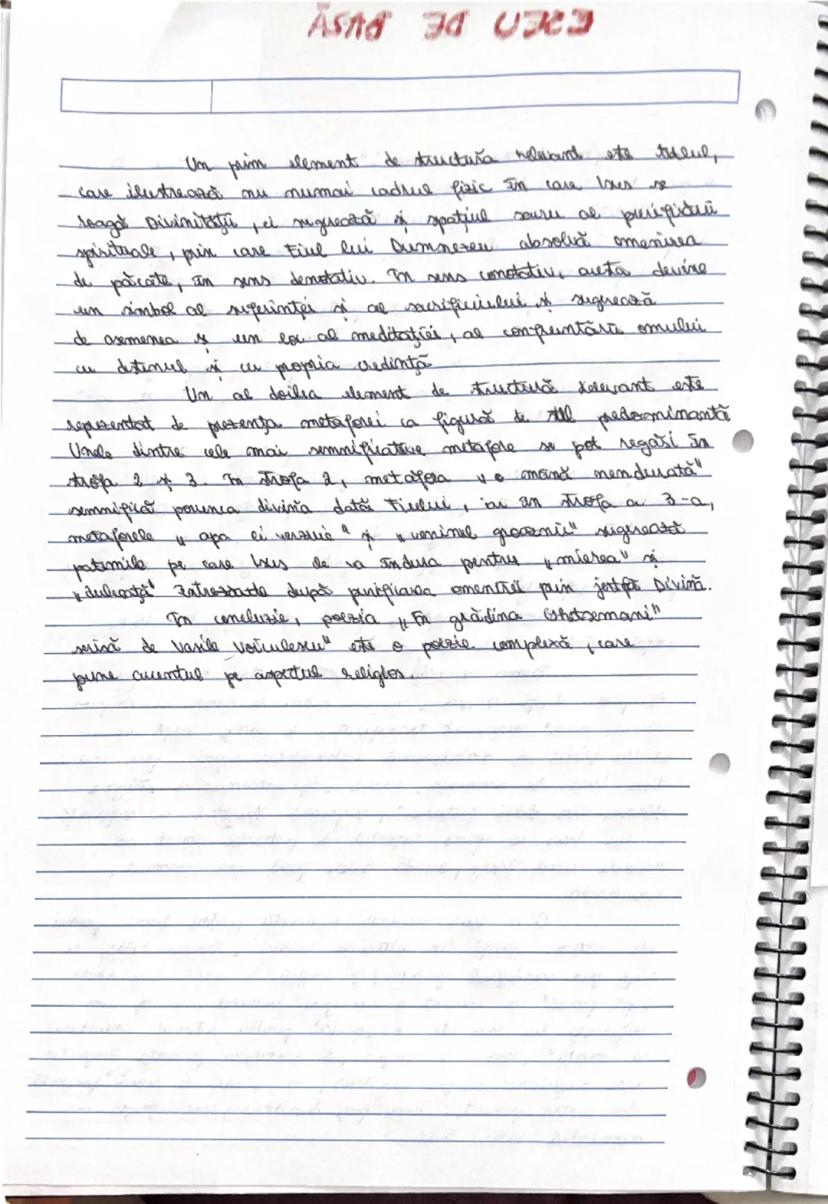 ESEU DE BAZĂ
Un prim element de structură relevant este titlul,
care ilustrează nu numai cadrul fizic în care Isus se
roagă Divinității, ci sugrează și spațiul sacru al purificării
spirituale, prin care Fiul lui Dumnezeu absolvă omenirea
de păcate, în sens denotativ. În sens conotativ, acesta devine
un simbol al suferinței și al sacrificiului și sugrează
de asemenea și un loc al meditației, al confruntării omului
cu destinul și cu propria credință
Un al doilea element de structură relevant este
reprezentat de prezența metaforei ca figură de stil predominantă
Unele dintre cele mai semnificative metafore se pot regăsi în
strofa 2 și 3. În strofa 2, metafora „o mână nendurată"
semnifică porunca divină dată Fiului, iar în strofa a 3-a,
metaforele „apa ei verzuie" și „veninul groaznic" sugrează
patimile pe care Isus le va îndura pentru „mierea" și
„dulceață" după purificarea omenirii prin jertfă Divină.
În concluzie, poezia „În grădina Ghetsemani"
scrisă de Vasile Voiculescu" este o poezie complexă, care
pune accentul pe aspectul religios.